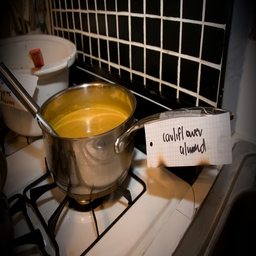 cauliflower
almond